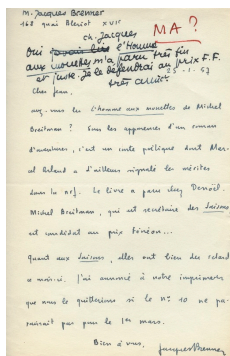 M. Jacques Brenner
168 quai Blériot XVIe
MA ?
ch. Jacques
Oui l'Homme
aux mouettes m'a paru très fin
et juste. Je le défendrai au prix F.F.
25-1-57
Cher Jean,
avez-vous lu L'homme aux mouettes de Michel
Breitman ? Sous les apparences d'un roman
d'aventures, c'est un conte poétique dont Mar-
cel Arland a d'ailleurs signalé les mérites
dans la nrf. Le livre a paru chez Denoël.
Michel Breitman, qui est secrétaire des Saisons
est candidat au prix Fénéon...
Quant aux Saisons, elles ont bien du retard
ce mois-ci. J'ai annoncé à notre imprimeur
que nous le quitterions si le n° 10 ne pa-
raissait pas pour le 1er mars.
Bien à vous,
Jacques Brenner